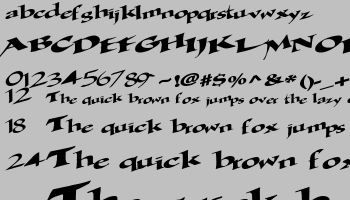 abcdefghijklmnopqrstuvwxyz
ABCDEFGHIJKLMNO
0123456789 ~!@#$%^&*()-_+
12 The quick brown fox jumps over the lazy
18 The quick brown fox jumps
24 The quick brown fox
The quick b